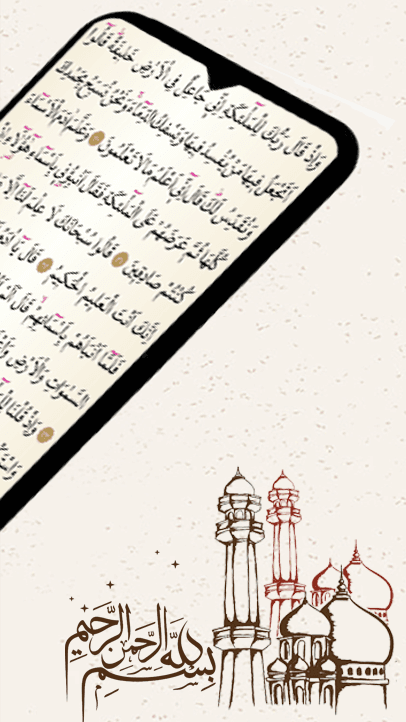 وَإِذْ قَالَ رَبُّكَ لِلْمَلَٰٓئِكَةِ إِنِّي جَاعِلٌ فِي الْأَرْضِ خَلِيفَةً قَالُوا
أَتَجْعَلُ فِيهَا مَنْ يُفْسِدُ فِيهَا وَيَسْفِكُ الدِّمَآءَ وَنَحْنُ نُسَبِّحُ بِحَمْدِكَ
وَنُقَدِّسُ لَكَ قَالَ إِنِّي أَعْلَمُ مَا لَا تَعْلَمُونَ وَعَلَّمَ آدَمَ الْأَسْمَآءَ
كُلَّهَا ثُمَّ عَرَضَهُمْ عَلَى الْمَلَٰٓئِكَةِ فَقَالَ أَنْبِئُونِي بِأَسْمَآءِ هَٰٓؤُلَآءِ
كُنْتُمْ صَادِقِينَ قَالُوا سُبْحَانَكَ لَا عِلْمَ لَنَا إِلَّا
إِنَّكَ أَنْتَ الْعَلِيمُ الْحَكِيمُ قَالَ يَآ آدَمُ
فَلَمَّآ أَنْبَأَهُمْ بِأَسْمَآئِهِمْ قَالَ أَلَمْ
السَّمٰوَاتِ وَالْأَرْضِ
وَإِذْ قُلْنَا
بِسْمِ اللَّهِ الرَّحْمَٰنِ الرَّحِيمِ